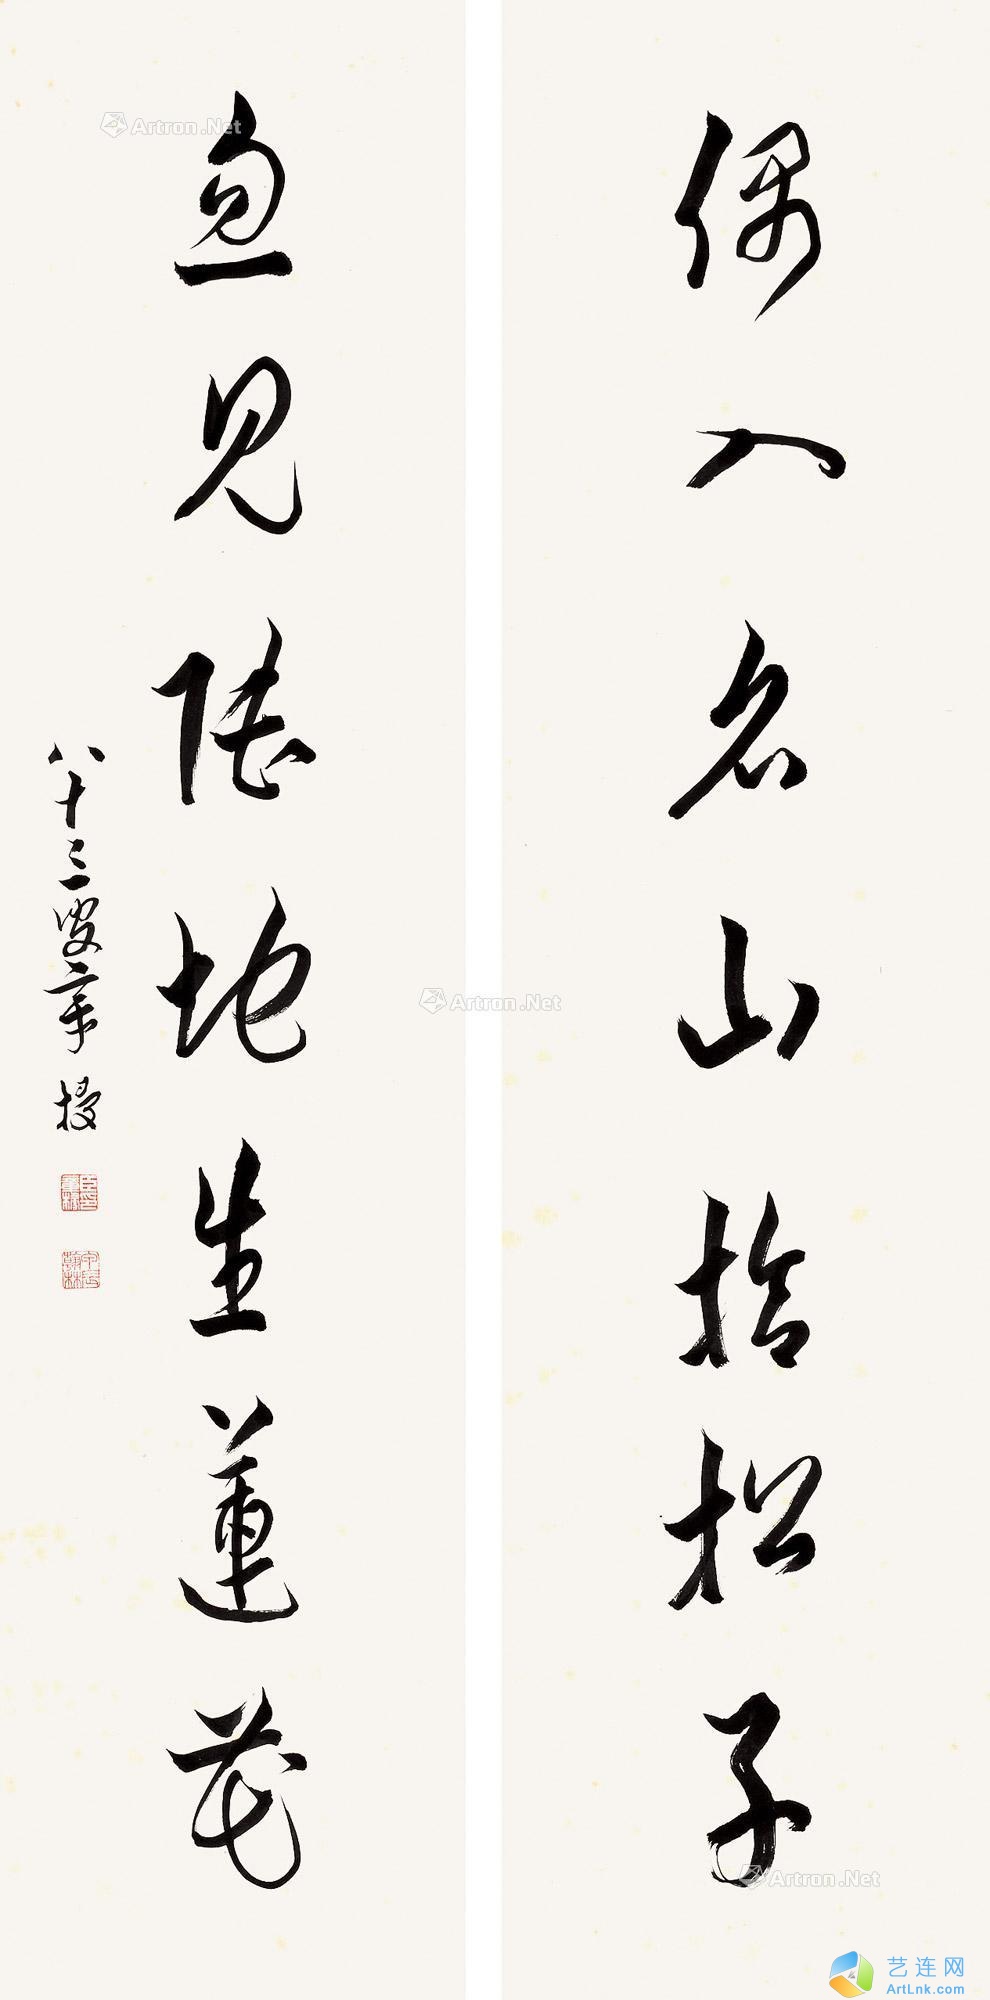 偶入名山拾松子
忽见陆地生莲花
八十三叟章梫
Artron.Net
Artron.Net
Artron.Net
艺连网
ArtLnk.com